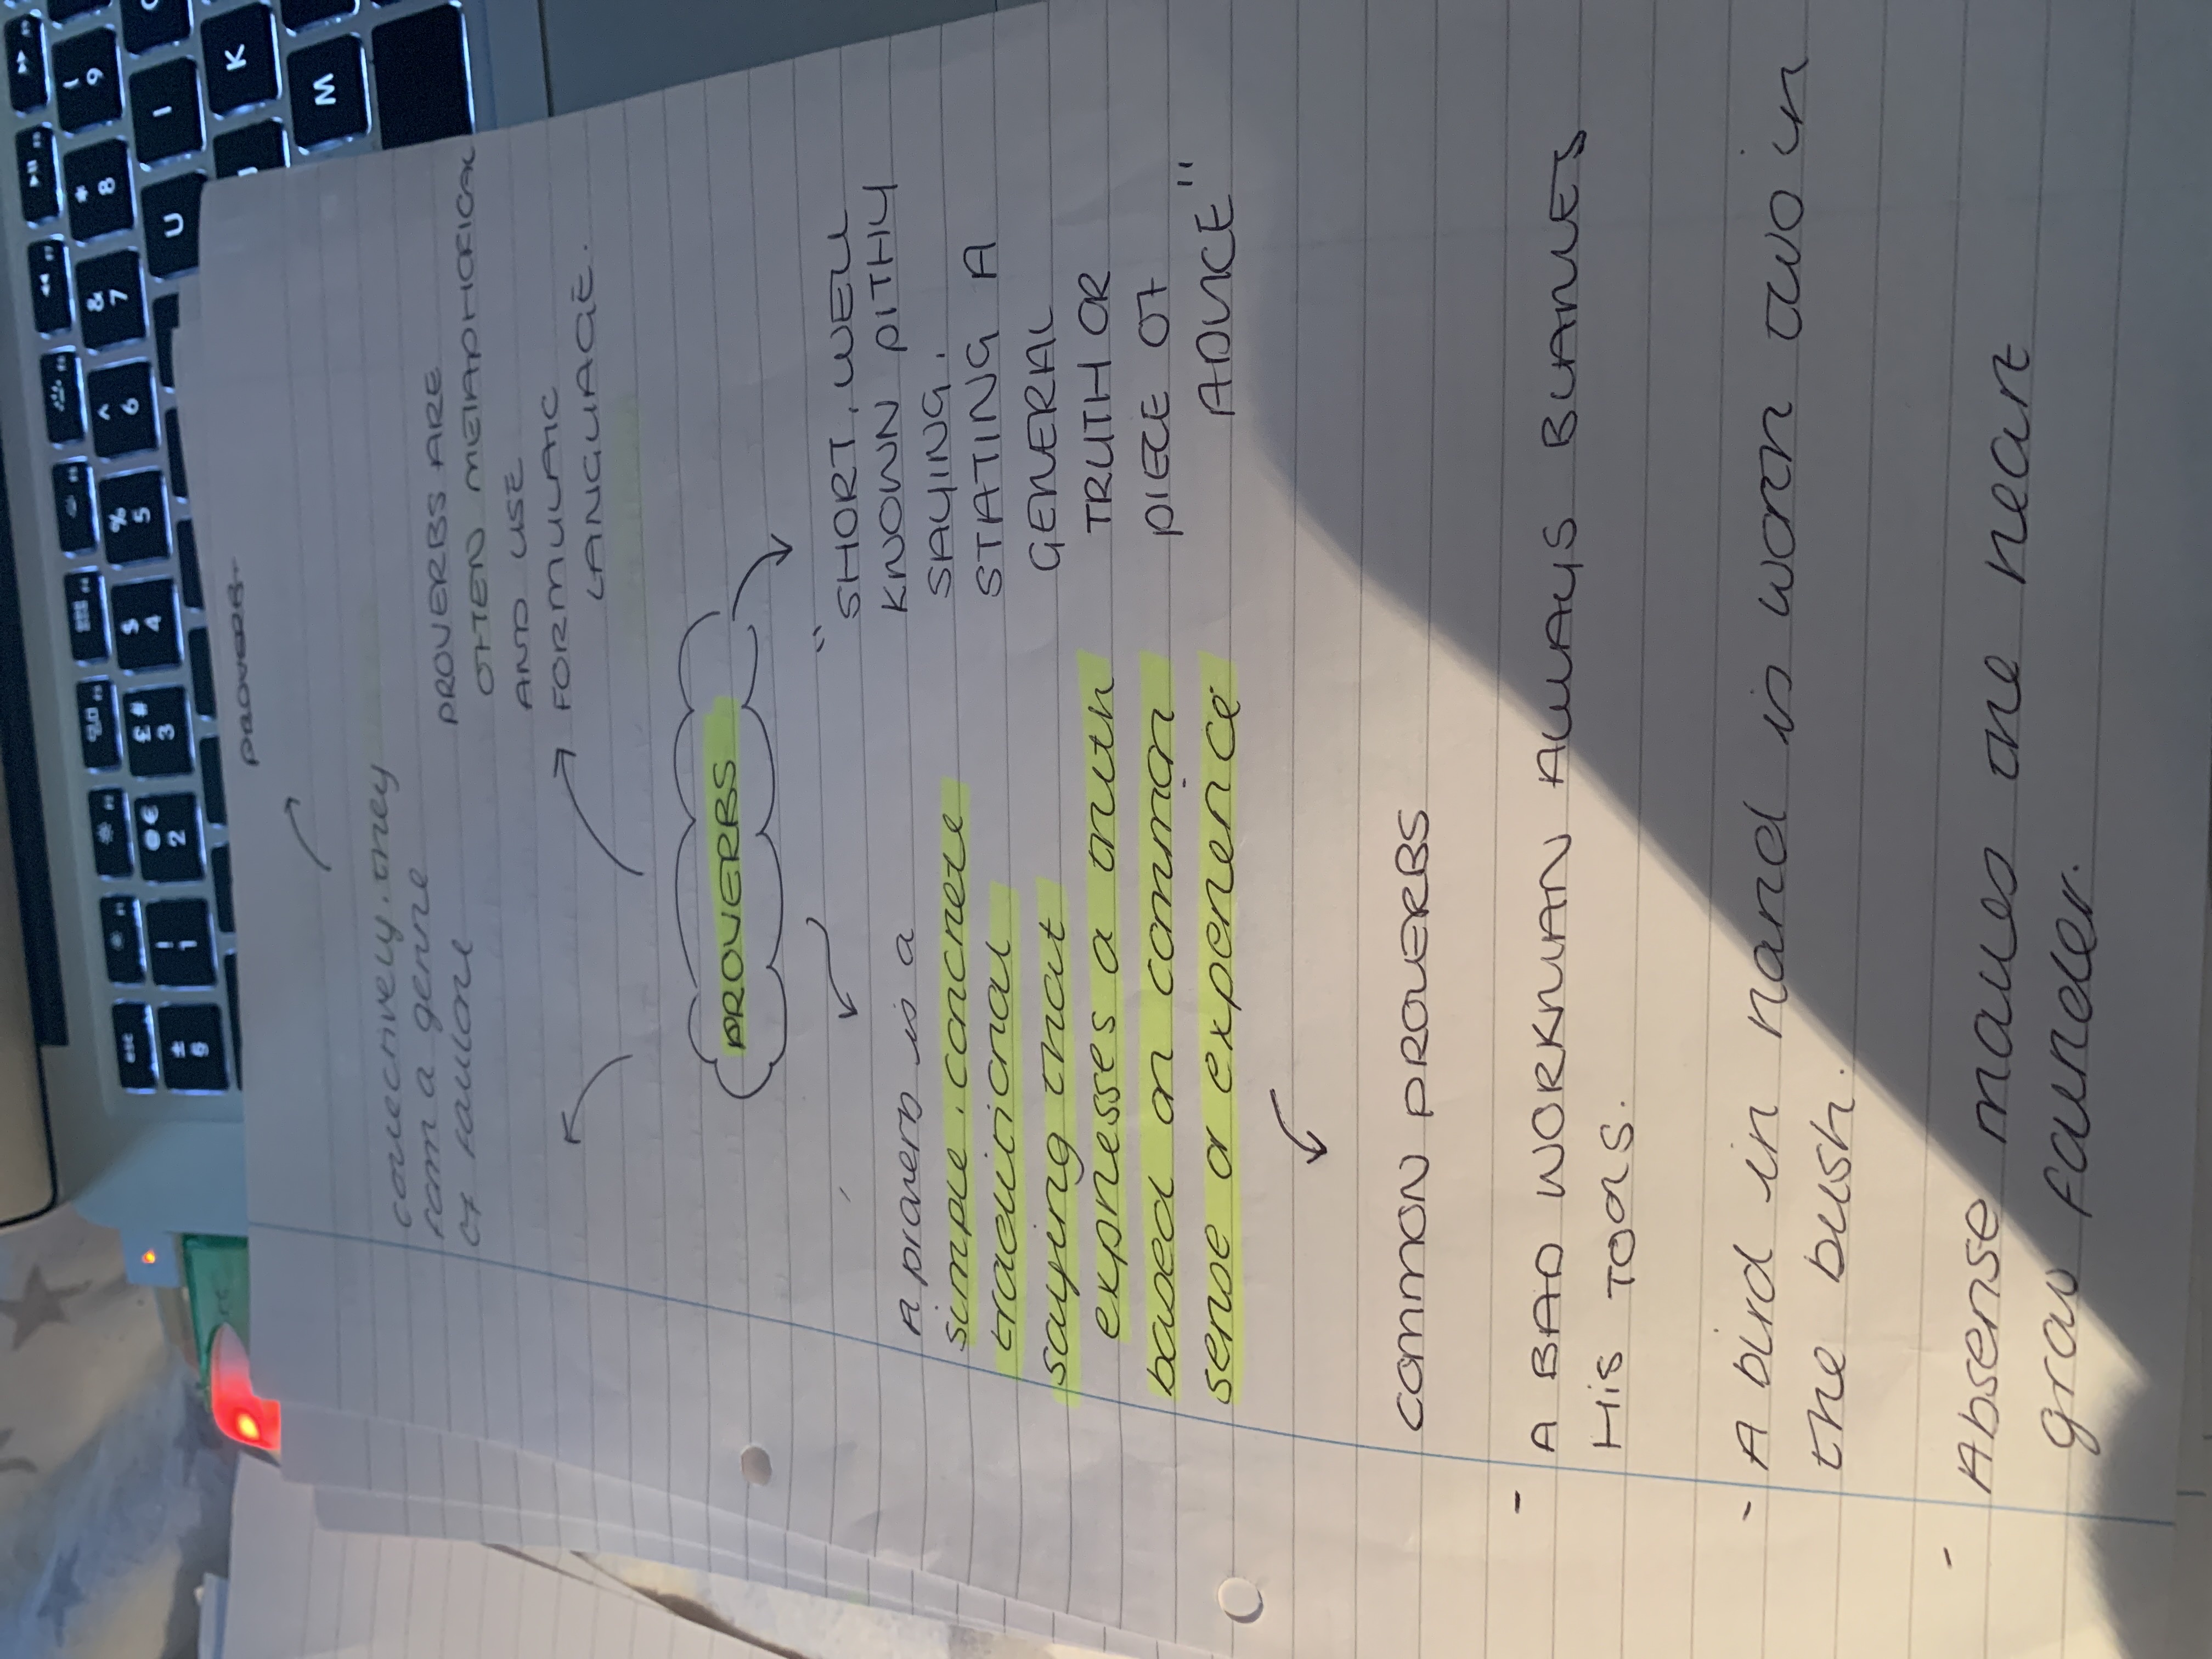 PROVERB-
collectively, they
form a genre
of faulore
PROVERBS ARE
OFTEN METAPHORICAL
AND USE
FORMULAIC
LANGUAGE.
PROVERBS
"SHORT, WELL
KNOWN PITHY
SAYING,
STATING A
GENERAL
TRUTH OR
PIECE OF
ADVICE"
A proverb is a
simple, concrete
traditional
saying that
expresses a truth
based on common
sense or experience
COMMON PROVERBS
- A BAD WORKMAN ALWAYS BLAMES
HIS TOOLS.
- A bird in hand is worth two in
the bush.
- Absense makes the heart
grow founder.
esc
± §
! 1
@ € 2
£ # 3
$ 4
% 5
^ 6
& 7
* 8
( 9
U
I
K
M